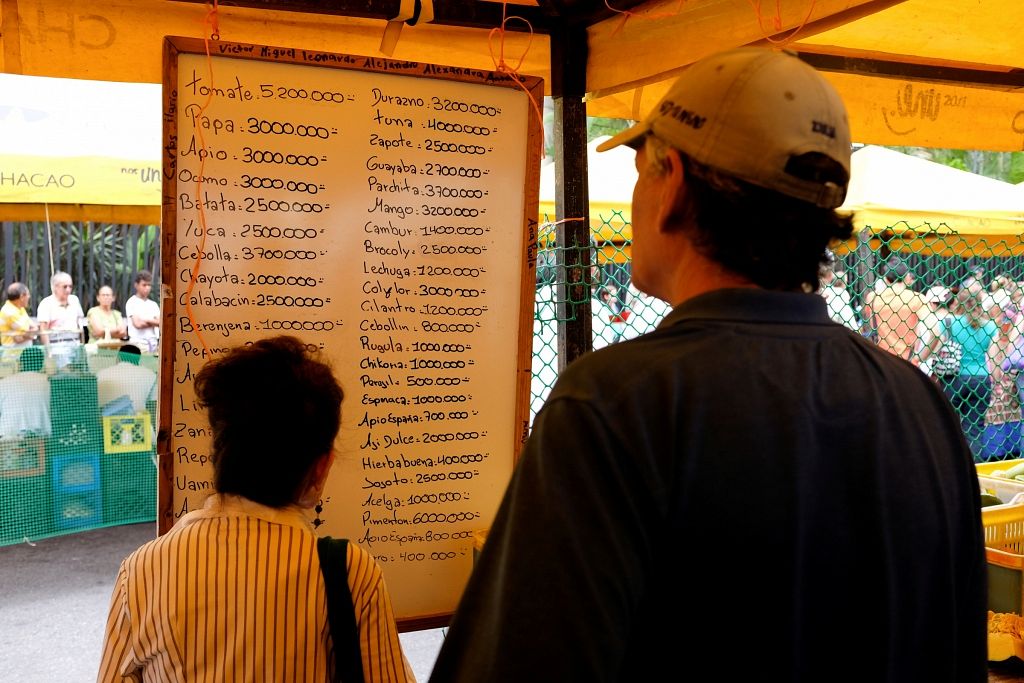 CHA
Victor Miguel leonardo Alejandro Alexandra Antonio
Carlos Mario
Ana Julia
tomate. 5.200.000
Papa. 3000.000
Apio. 3000.000
Ocumo. 3000.000
Batata. 2500.000
Yuca. 2500.000
Cebolla. 3700.000
Chayota. 2000.000
Calabacin. 2500.000
Berenjena. 1000.000
Pepino
Zan
Rep
Durazno. 3200.000
tuna. 4000.000
Zapote. 2500.000
Guayaba. 2700.000
Parchita. 3700.000
Mango. 3200.000
Cambur. 1400.000
Brocoly. 2500.000
Lechuga. 1200.000
Colyflor. 3000.000
Cilantro. 1200.000
Cebollin. 800.000
Rugula. 1000.000
Chikoria. 1000.000
Perejil. 500.000
Espinaca. 1000.000
Apio España. 700.000
Aji Dulce. 2000.000
Hierbabuena. 400.000
Jojoto. 2500.000
Acelga. 1000.000
Pimenton. 6000.000
Apio España. 800.000
rro. 400.000
HACAO
nos un
2011